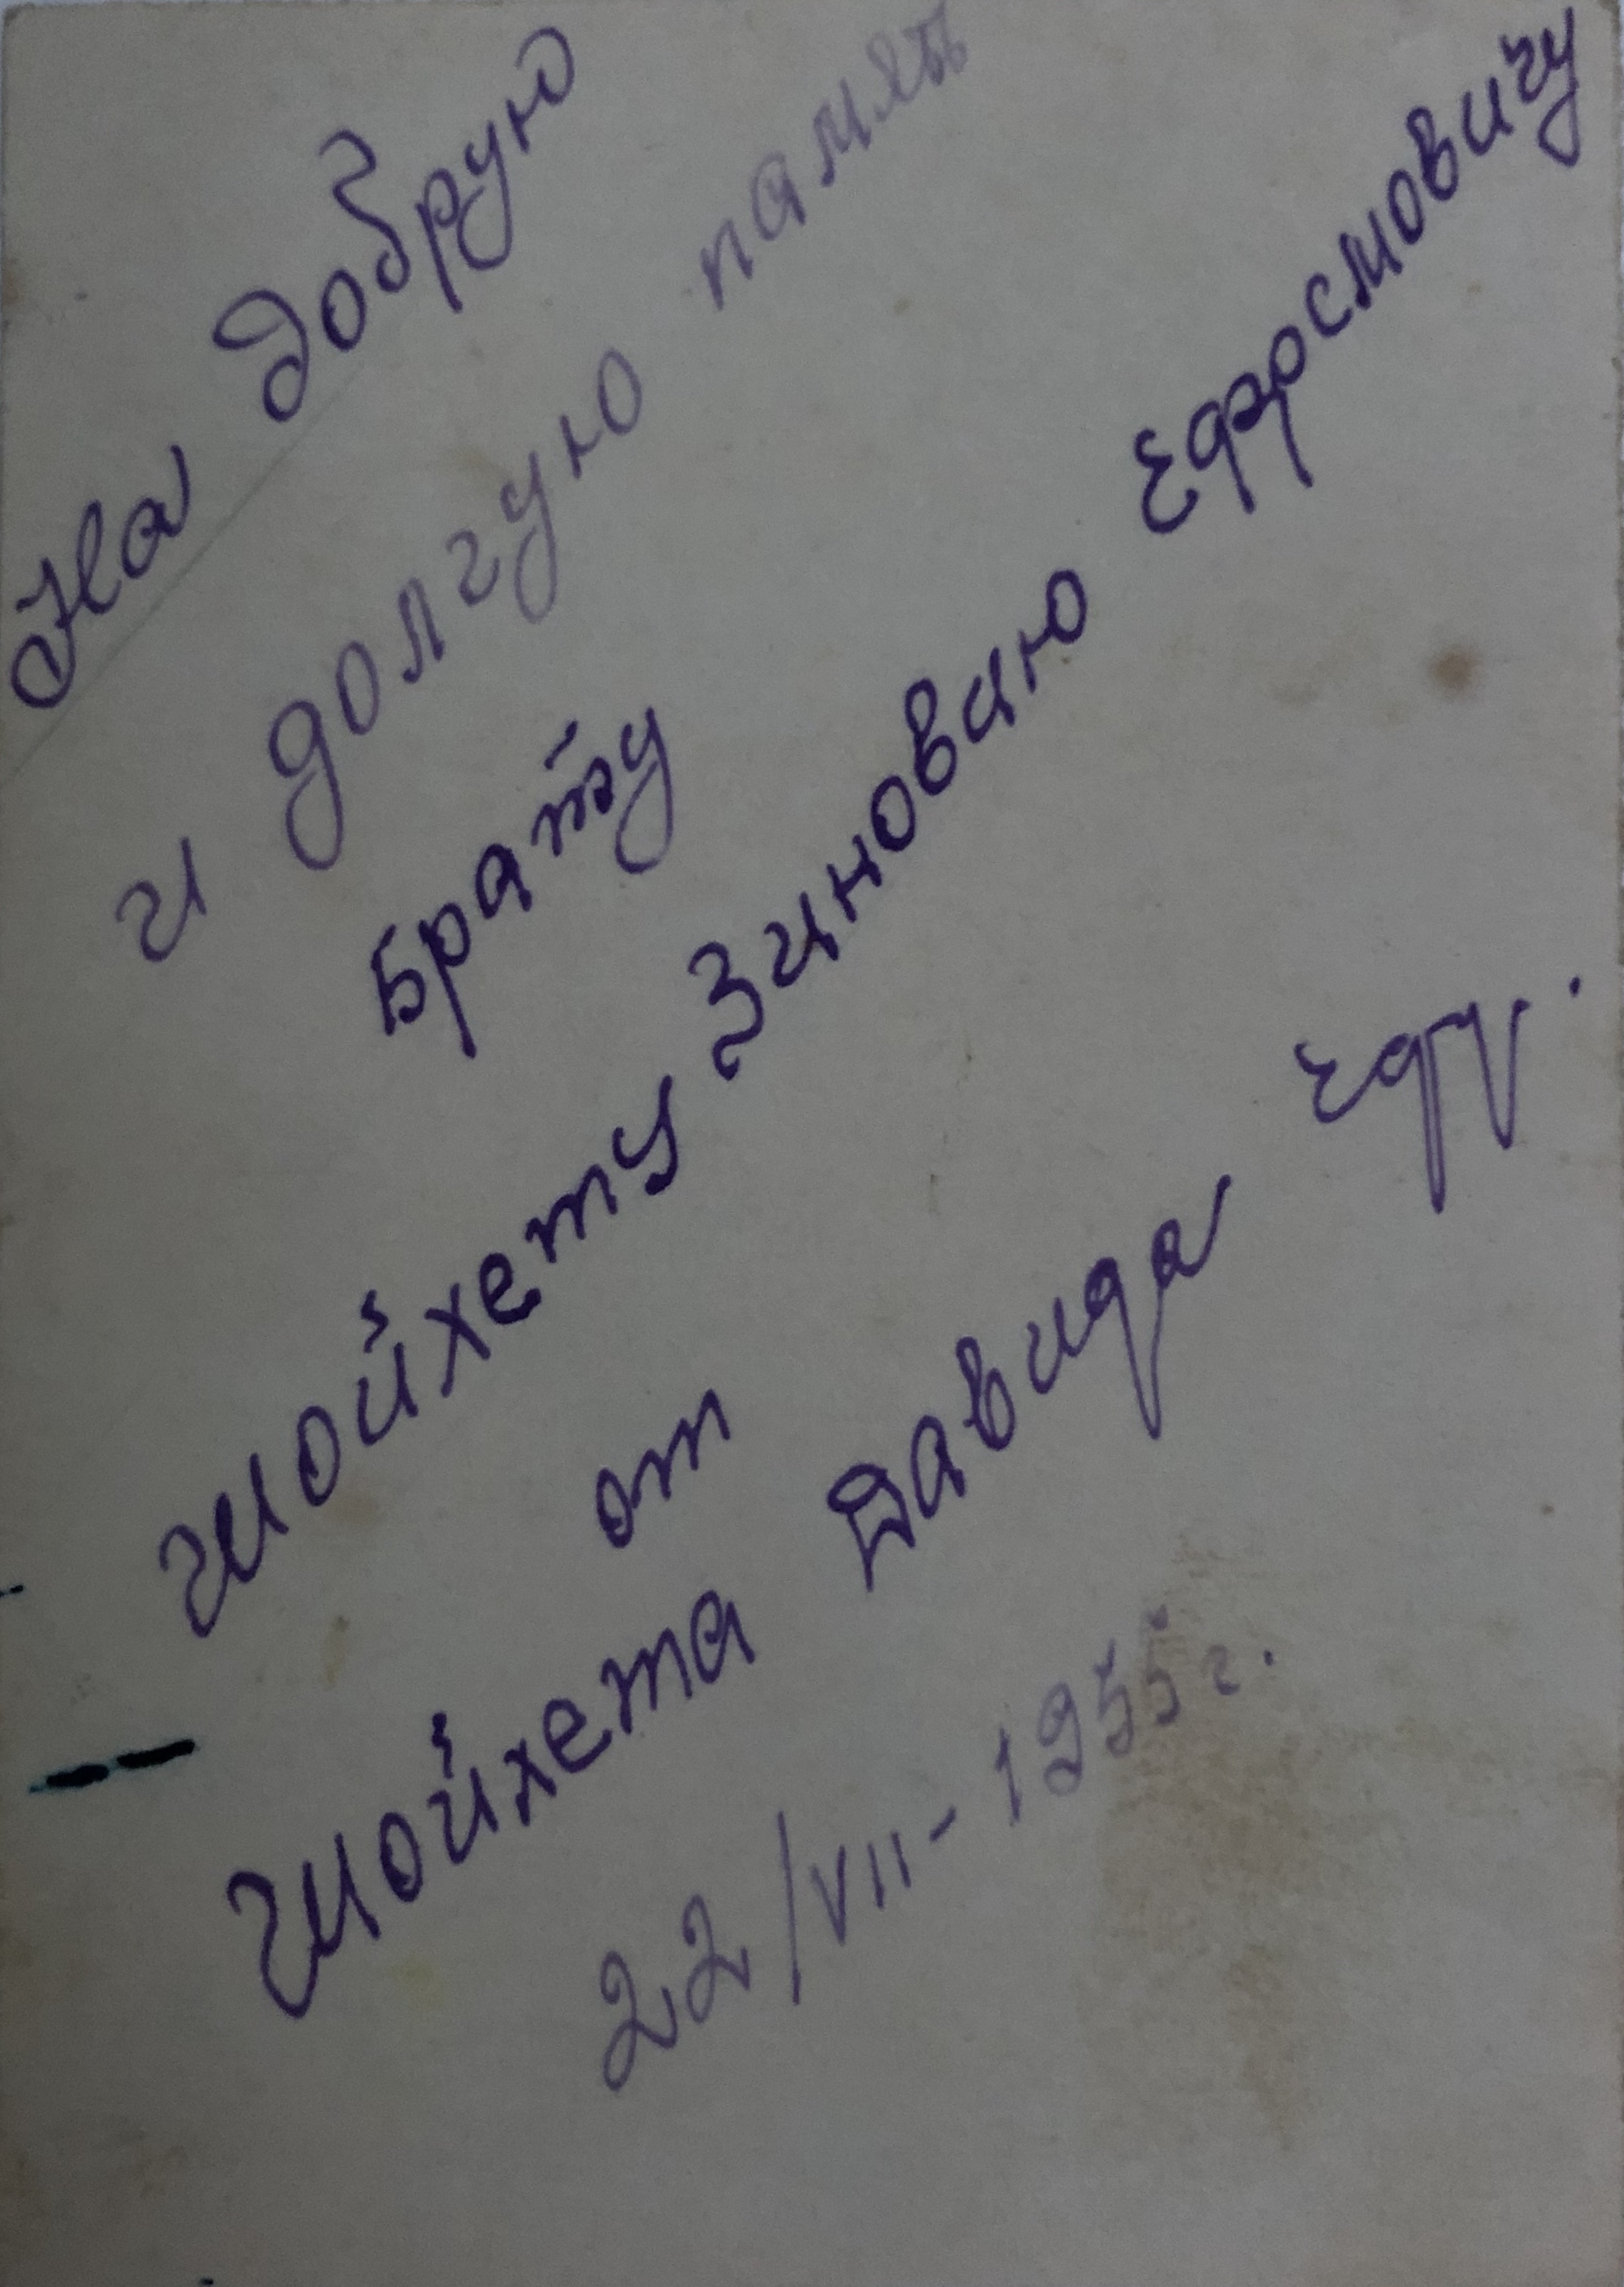 На добрую
и долгую память
Брату
Шойхету Зиновию Ефросмовичу
от
Шойхета Давида Ефр.
22/VII-1955 г.